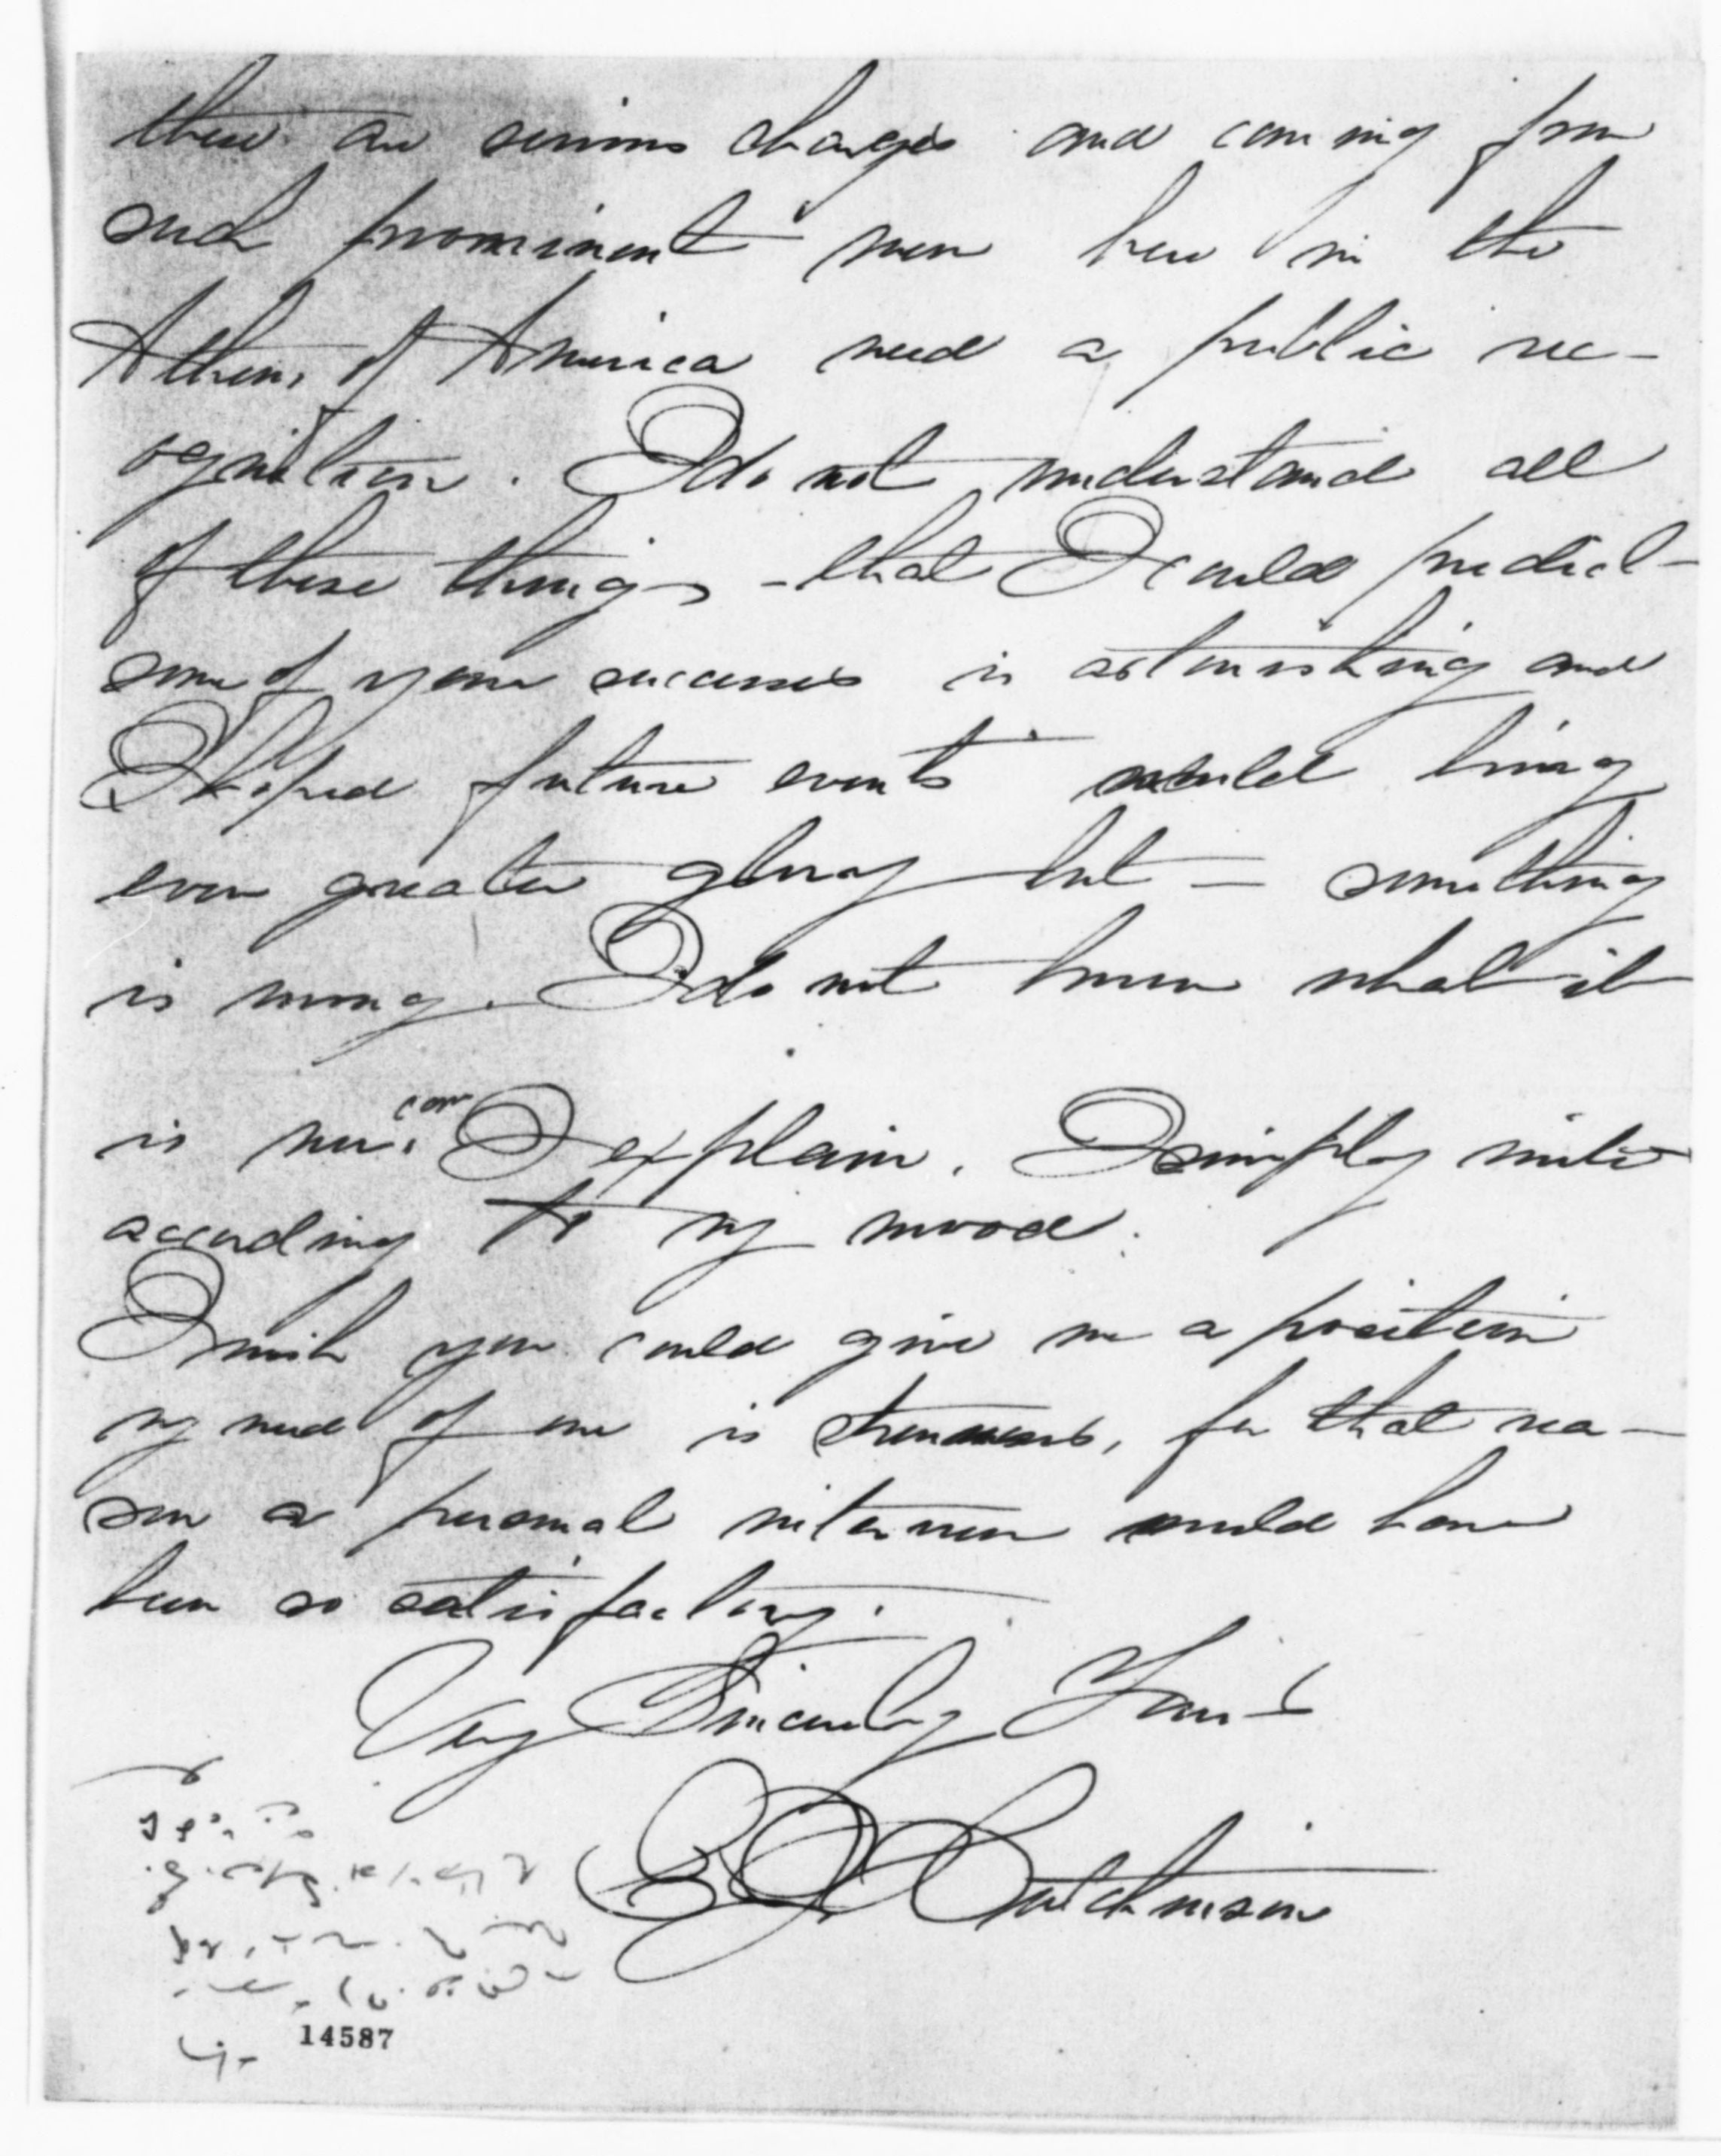 these are serious charges and coming from
such prominent men here in the
Athens of America need a public rec-
ognition. I do not understand all
of these things - that I could predict
some of your successes is astonishing and
I hoped future events would bring
even greater glory but - something
is wrong. I do not know what it
is nor can I explain. I simply write
according to my mood.
I wish you could give me a position
my need of one is strenuous, for that rea-
son a personal interview would have
been so satisfactory.
Very Sincerely Yours
Hutchinson
14587